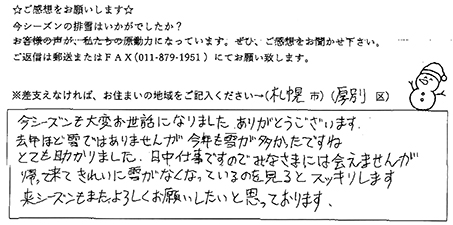 ☆ご感想をお願いします☆
今シーズンの排雪はいかがでしたか？
お客様の声が、私たちの原動力になっています。ぜひ、ご感想をお聞かせ下さい。
ご返信は郵送またはＦＡＸ(011-879-1951)にてお願い致します。
※差支えなければ、お住まいの地域をご記入ください→(札幌 市)(厚別 区)
今シーズンも大変お世話になりました。ありがとうございます。
去年ほど雪ではありませんが今年も雪が多かったですね
とても助かりました。日中仕事ですのでみなさまには会えませんが
帰って来てきれいに雪がなくなっているのを見るとスッキリします
来シーズンもまた、よろしくお願いしたいと思っております。